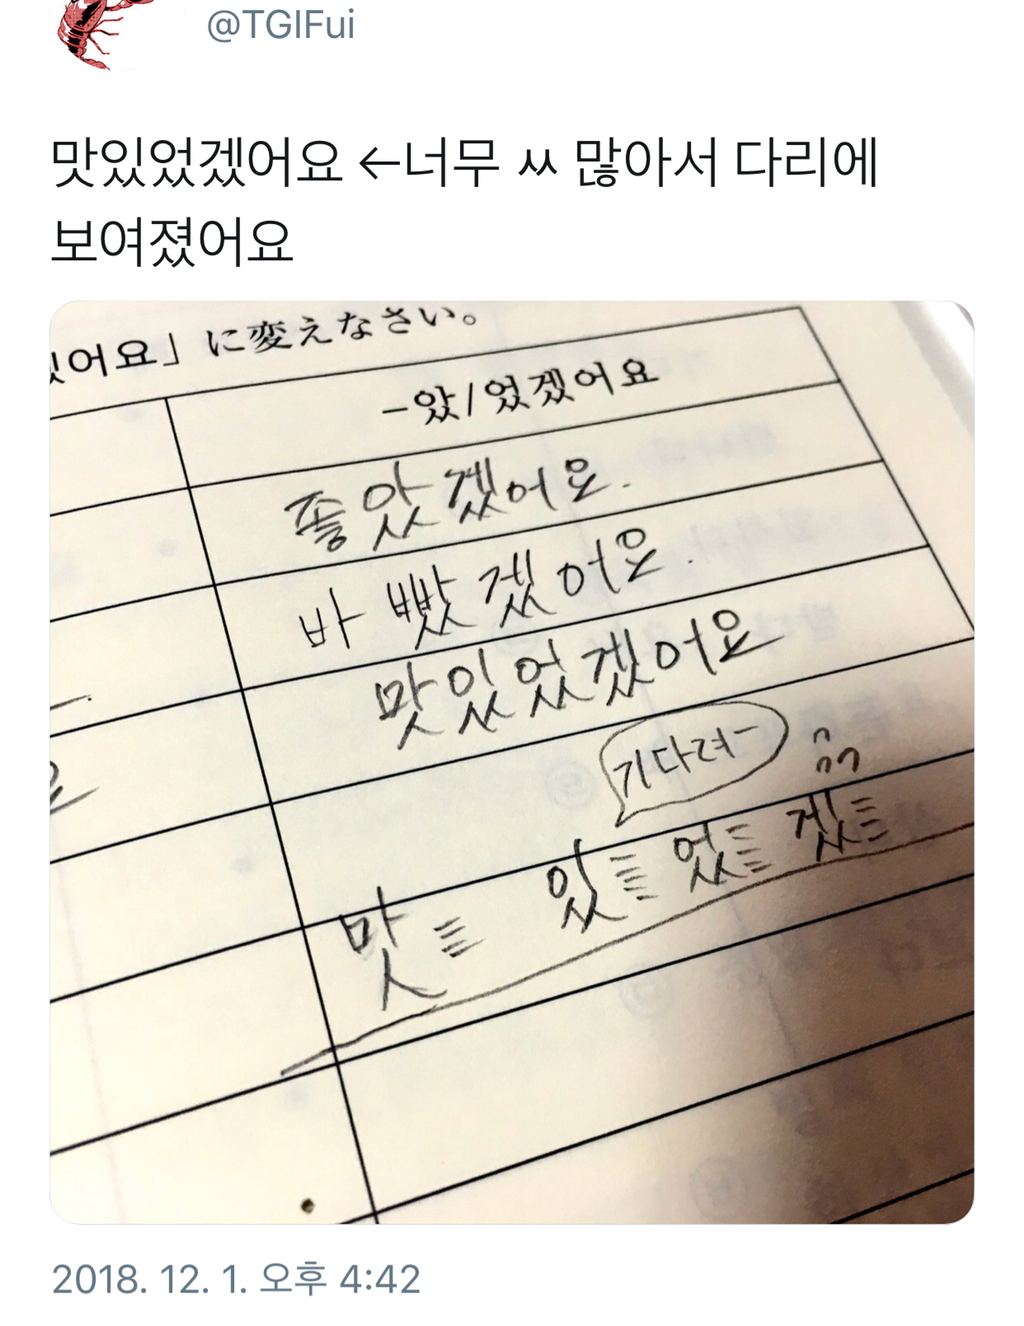 @TGIFui
맛있었겠어요 ←너무 ㅆ 많아서 다리에
보여졌어요
어요」に変えなさい。
-았/었겠어요
좋았겠어요.
바빴겠어요.
맛있었겠어요
기다려-
맛 있 었 겠
2018. 12. 1. 오후 4:42